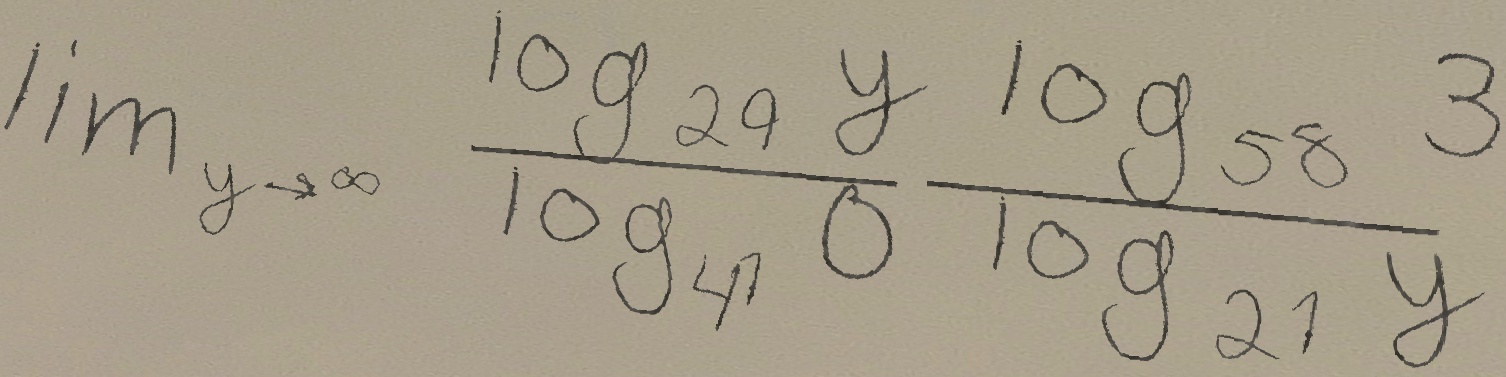 \lim_{y \to \infty} \frac{\log_{29} y}{\log_{41} 0} \frac{\log_{58} 3}{\log_{21} y}